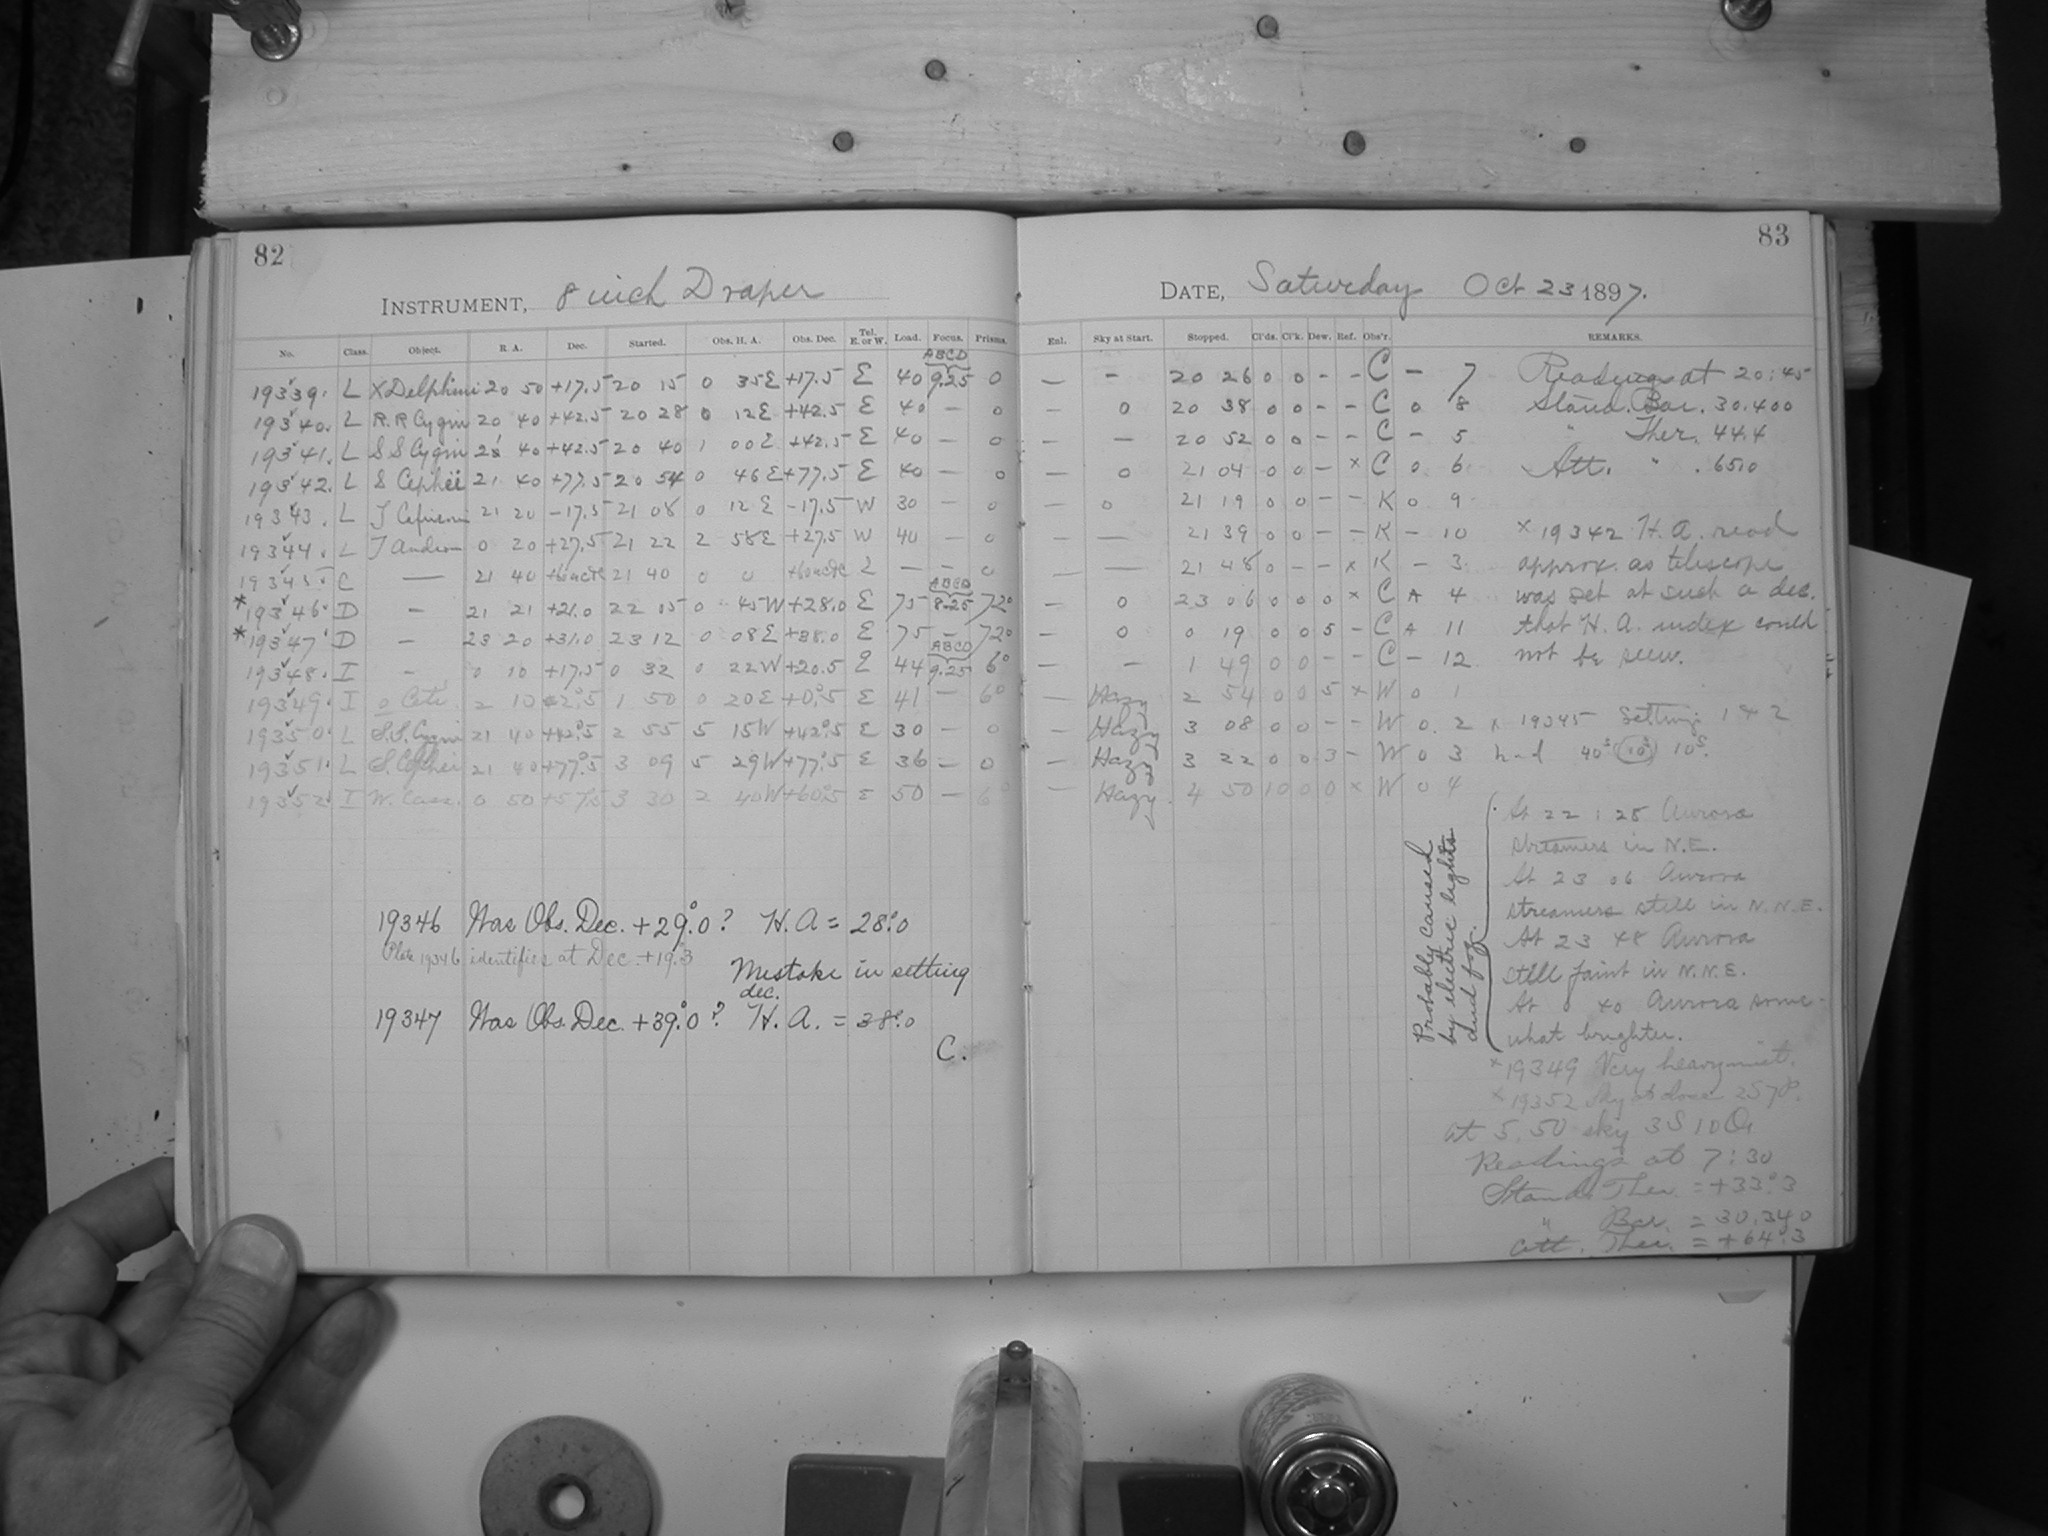 82
INSTRUMENT, 8 inch Draper
No. Class. Object. R. A. Dec. Started. Obs. H. A. Obs. Dec. Tel. E. or W. Load. Focus. Prisms.
ABCD
19339. L X Delphini 20 50 +17.5 20 15 0 35E +17.5 E 40 9.25 0
19340. L R.R Cygni 20 40 +42.5 20 28 0 12E +42.5 E 40 – 0
19341. L S S Cygni 21 40 +42.5 20 40 1 00E +42.5 E 40 – 0
19342. L S Cephei 21 40 +77.5 20 54 0 46E +77.5 E 40 – 0
19343. L T Capricorni 21 20 –17.5 21 08 0 12E –17.5 W 30 – 0
19344. L T Androm 0 20 +27.5 21 22 2 58E +27.5 W 40 – 0
19345 C — 21 40 21 40 0 0 – – 0
ABCD
*19346. D – 21 21 +21.0 22 15 0 45W +28.0 E 75 8.25 72°
*19347. D – 23 20 +31.0 23 12 0 08E +38.0 E 75 – 72°
ABCD
19348. I – 0 10 +17.5 0 32 0 22W +20.5 E 44 9.25 6°
19349. I o Ceti 2 10 1 50 0 20E +0°.5 E 41 – 6°
19350. L S.S. Cygni 21 40 +42°.5 2 55 5 15W +42°.5 E 30 – 0
19351. L S. Cephei 21 40 +77°.5 3 09 5 29W +77°.5 E 36 – 0
19352. I W. Cass. 0 50 +57.5 3 30 2 40W +60°.5 E 50 – 6°
19346 Was Obs. Dec. +29°.0? H.A = 28°.0
Plate 19346 identifies at Dec. +19.3
Mistake in setting
dec.
19347 Was Obs. Dec. +39°.0? H.A. = 38°.0
C.
83
DATE, Saturday Oct 23 1897.
Enl. Sky at Start. Stopped. Cl'ds. Cl'k. Dew. Ref. Obs'r. REMARKS.
– – 20 26 0 0 – – C – 7 Readings at 20:45
– 0 20 38 0 0 – – C 0 8 Stand. Bar. 30.400
– – 20 52 0 0 – – C – 5 " Ther. 44.4
– 0 21 04 0 0 – × C 0 6 Att. " . 65.0
– 0 21 19 0 0 – – K 0 9
– — 21 39 0 0 – – K – 10 × 19342 H.A. read
– — 21 48 0 – – × K – 3 approx. as telescope
– 0 23 06 0 0 0 × C A 4 was set at such a dec.
– 0 0 19 0 0 5 – C A 11 that H.A. index could
– – 1 49 0 0 – – C – 12 not be seen.
– Hazy 2 54 0 0 5 × W 0 1
– Hazy 3 08 0 0 – – W 0. 2 × 19345 Setting 1 & 2
– Hazy 3 22 0 0 3 – W 0 3 h-d 40s 10s 10s.
– Hazy. 4 50 10 0 0 × W 0 4
At 22:25 Aurora
streamers in N.E.
At 23 06 Aurora
streamers still in N.N.E.
At 23 48 Aurora
still faint in N.N.E.
At 0 40 Aurora some-
what brighter.
Probably caused
by electric lights
and fog.
× 19349 Very heavy mist.
× 19352 Sky at close
at 5.50 sky
Readings at 7:30
Stand. Ther. = +33°.3
" Bar. = 30.340
Att. Ther. = +64°.3